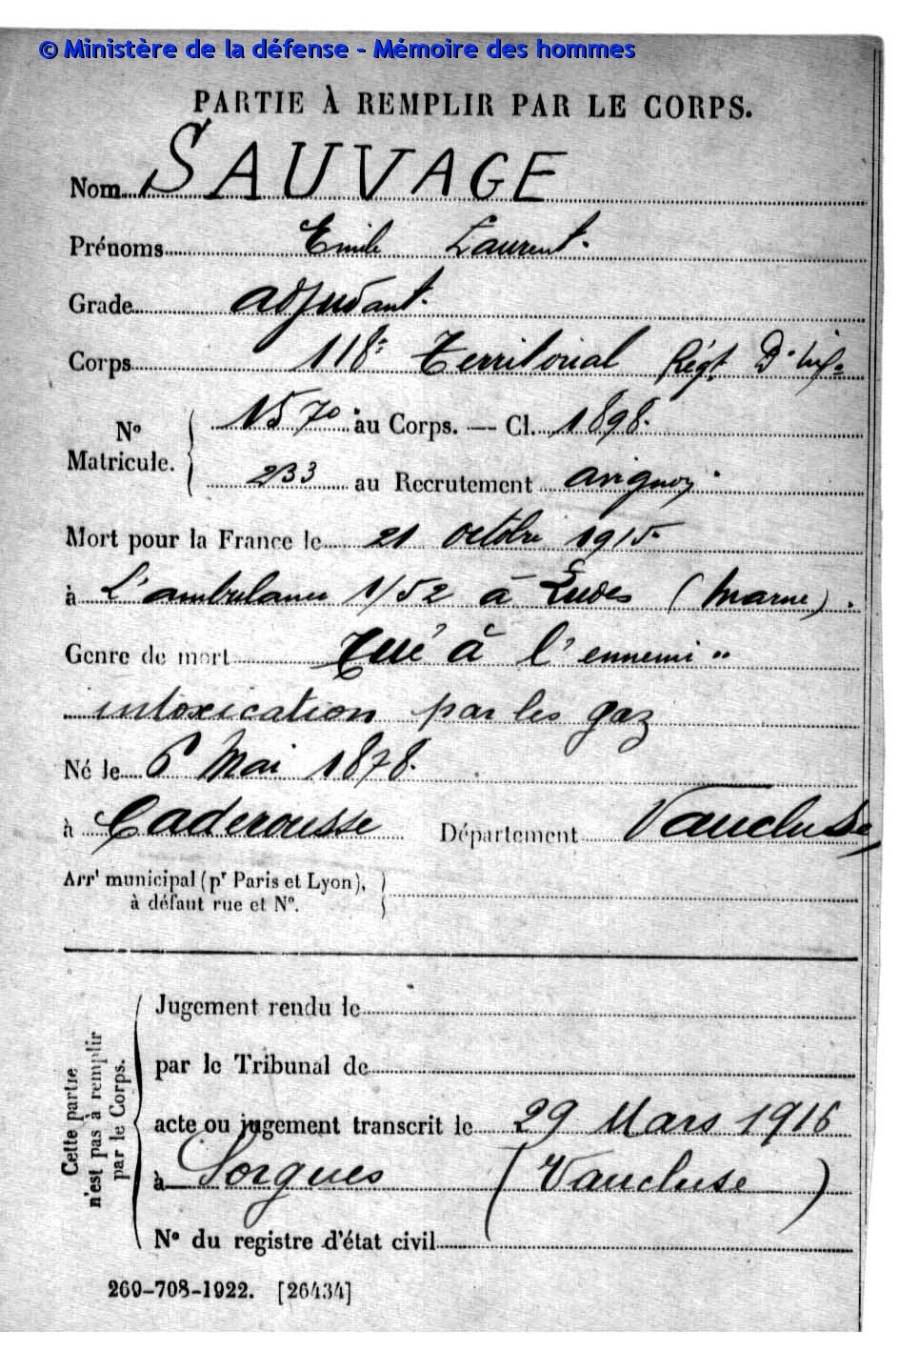 © Ministère de la défense - Mémoire des hommes
PARTIE À REMPLIR PAR LE CORPS.
Nom SAUVAGE
Prénoms Emile Laurent.
Grade adjudant.
Corps 118e Territorial Régt D'Infie
No Matricule. 1570 au Corps. — Cl. 1898.
233 au Recrutement avignon
Mort pour la France le 21 octobre 1915
à L'ambulance 1/52 à Ludes (Marne).
Genre de mort Tué à l'ennemi "
intoxication par les gaz
Né le 6 Mai 1878.
à Caderousse Département Vaucluse
Arrt municipal (pr Paris et Lyon),
à défaut rue et No.
Cette partie n'est pas à remplir par le Corps.
Jugement rendu le
par le Tribunal de
acte ou jugement transcrit le 29 Mars 1916
à Sorgues (Vaucluse)
No du registre d'état civil
260-708-1922. [26434]